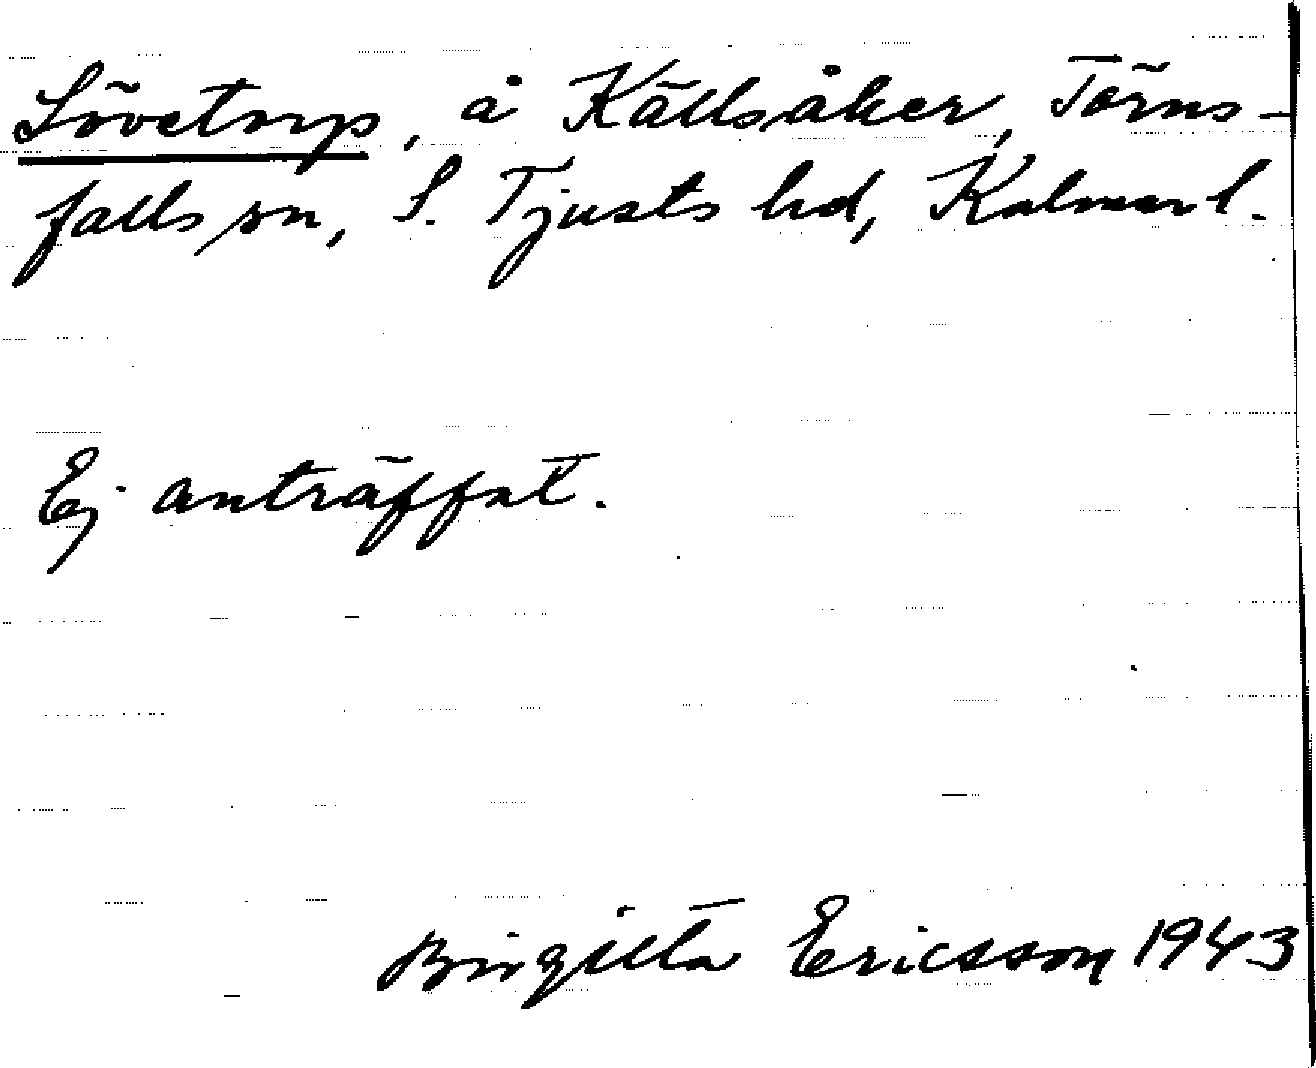 Lövetorp, å Källsåker, Törns-
falls sn, S. Tjusts hd, Kalmar l.
Ej anträffat.
Birgitta Ericsson 1943